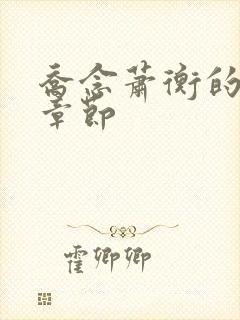 乔念萧衡的
章节
霍卿卿